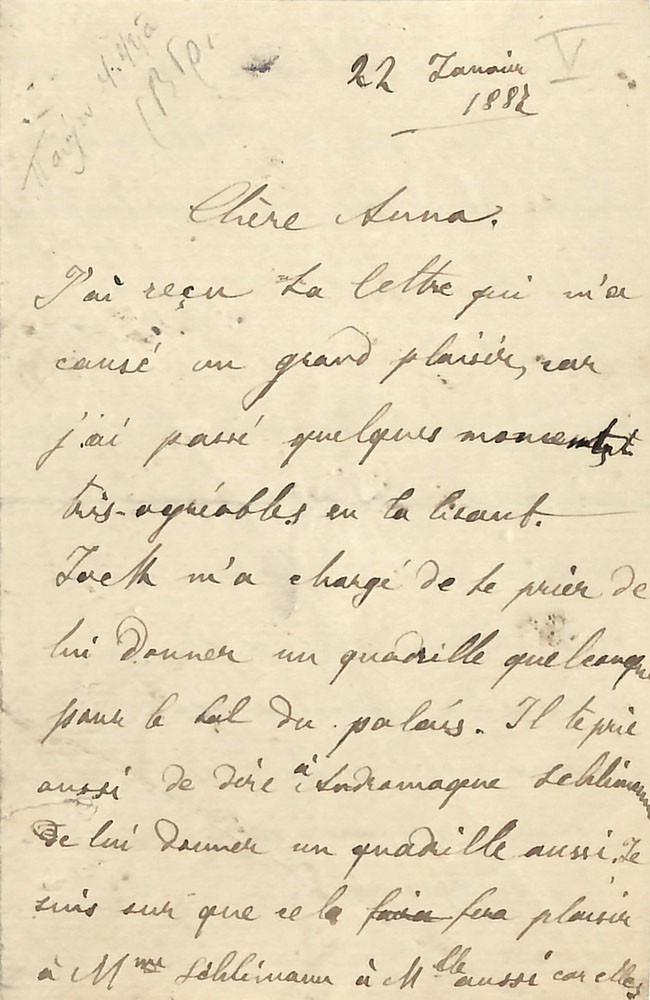 22 Janvier
188
V
Chère Anna.
J'ai reçu ta lettre qui m'a
causé un grand plaisir, car
j'ai passé quelques moments
très-agréables en la lisant.
m'a chargé de te prier de
lui donner un quadrille quelconque
pour le bal du palais. Il te prie
aussi de dire à Andromaque Schlimann
de lui donner un quadrille aussi. Je
suis sur que cela fera plaisir
à Mme Schlimann à Mlle aussi car elles